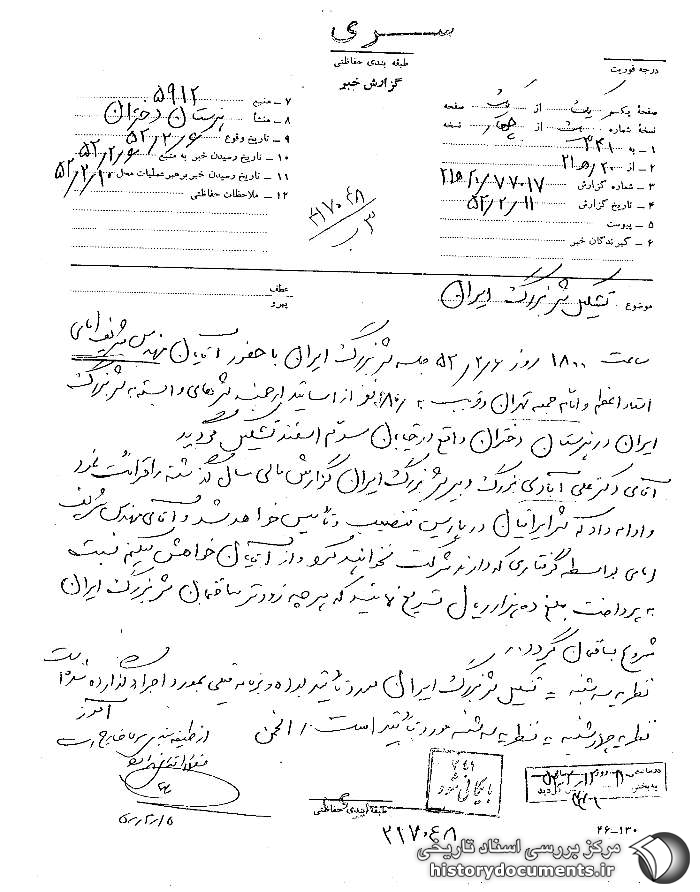 سری
طبقه بندی حفاظتی
گزارش خبر
درجه فوریت
صفحه یک از یک صفحه
نسخه شماره از چهار نسخه
۱ - به ۳۴۱
۲ - از ۲۰ ه ۲۱
۳ - شماره گزارش
۴ - تاریخ گزارش ۵۲/۲/۱۱
۵ - پیوست
۶ - گیرندگان خبر
۷ - منبع ۵۹۱۲
۸ - منشأ هنرستان دختران
۹ - تاریخ وقوع ۵۲/۲/۶
۱۰ - تاریخ رسیدن خبر به منبع ۵۲/۲/۶
۱۱ - تاریخ رسیدن خبر برهبر عملیات محل ۵۲/۲/۱۰
۱۲ - ملاحظات حفاظتی
۳۱۷۰۴۸
موضوع تشکیل لژ بزرگ ایران
عطف
پیرو
ساعت ۱۸۰۰ روز ۵۲/۲/۶ جلسه لژ بزرگ ایران با حضور آقایان مهندس شریف امامی
استاد اعظم و امام جمعه تهران و قریب به نفر از اساتید لژهای وابسته به لژ بزرگ
ایران در هنرستان دختران واقع در خیابان سوم اسفند تشکیل گردید
آقای دکتر علی آبادی بزرگ دبیر لژ بزرگ ایران گزارش مالی سال گذشته را قرائت نمود
و ادامه داد که لژ ایرانیان در پاریس تنصیب و تأسیس خواهد شد و آقای مهندس شریف
امامی بواسطه گرفتاری که دارند شرکت نخواهند کرد و از آقایان خواهش میکنم نسبت
به پرداخت مبلغ ده هزار ریال تسریع نمائید که هر چه زودتر ساختمان لژ بزرگ ایران
شروع بساختمان گردد.
نظریه سه شنبه = تشکیل لژ بزرگ ایران مورد تأیید بوده و برنامه قبلی بمورد اجرا گذارده شده است
نظریه چهارشنبه = نظریه سه شنبه مورد تأیید است / انجمن
بایگانی شود
طبقه بندی حفاظتی
۳۱۷۰۴۸
۲۶-۱۳۰
مرکز بررسی اسناد تاریخی
historydocuments.ir